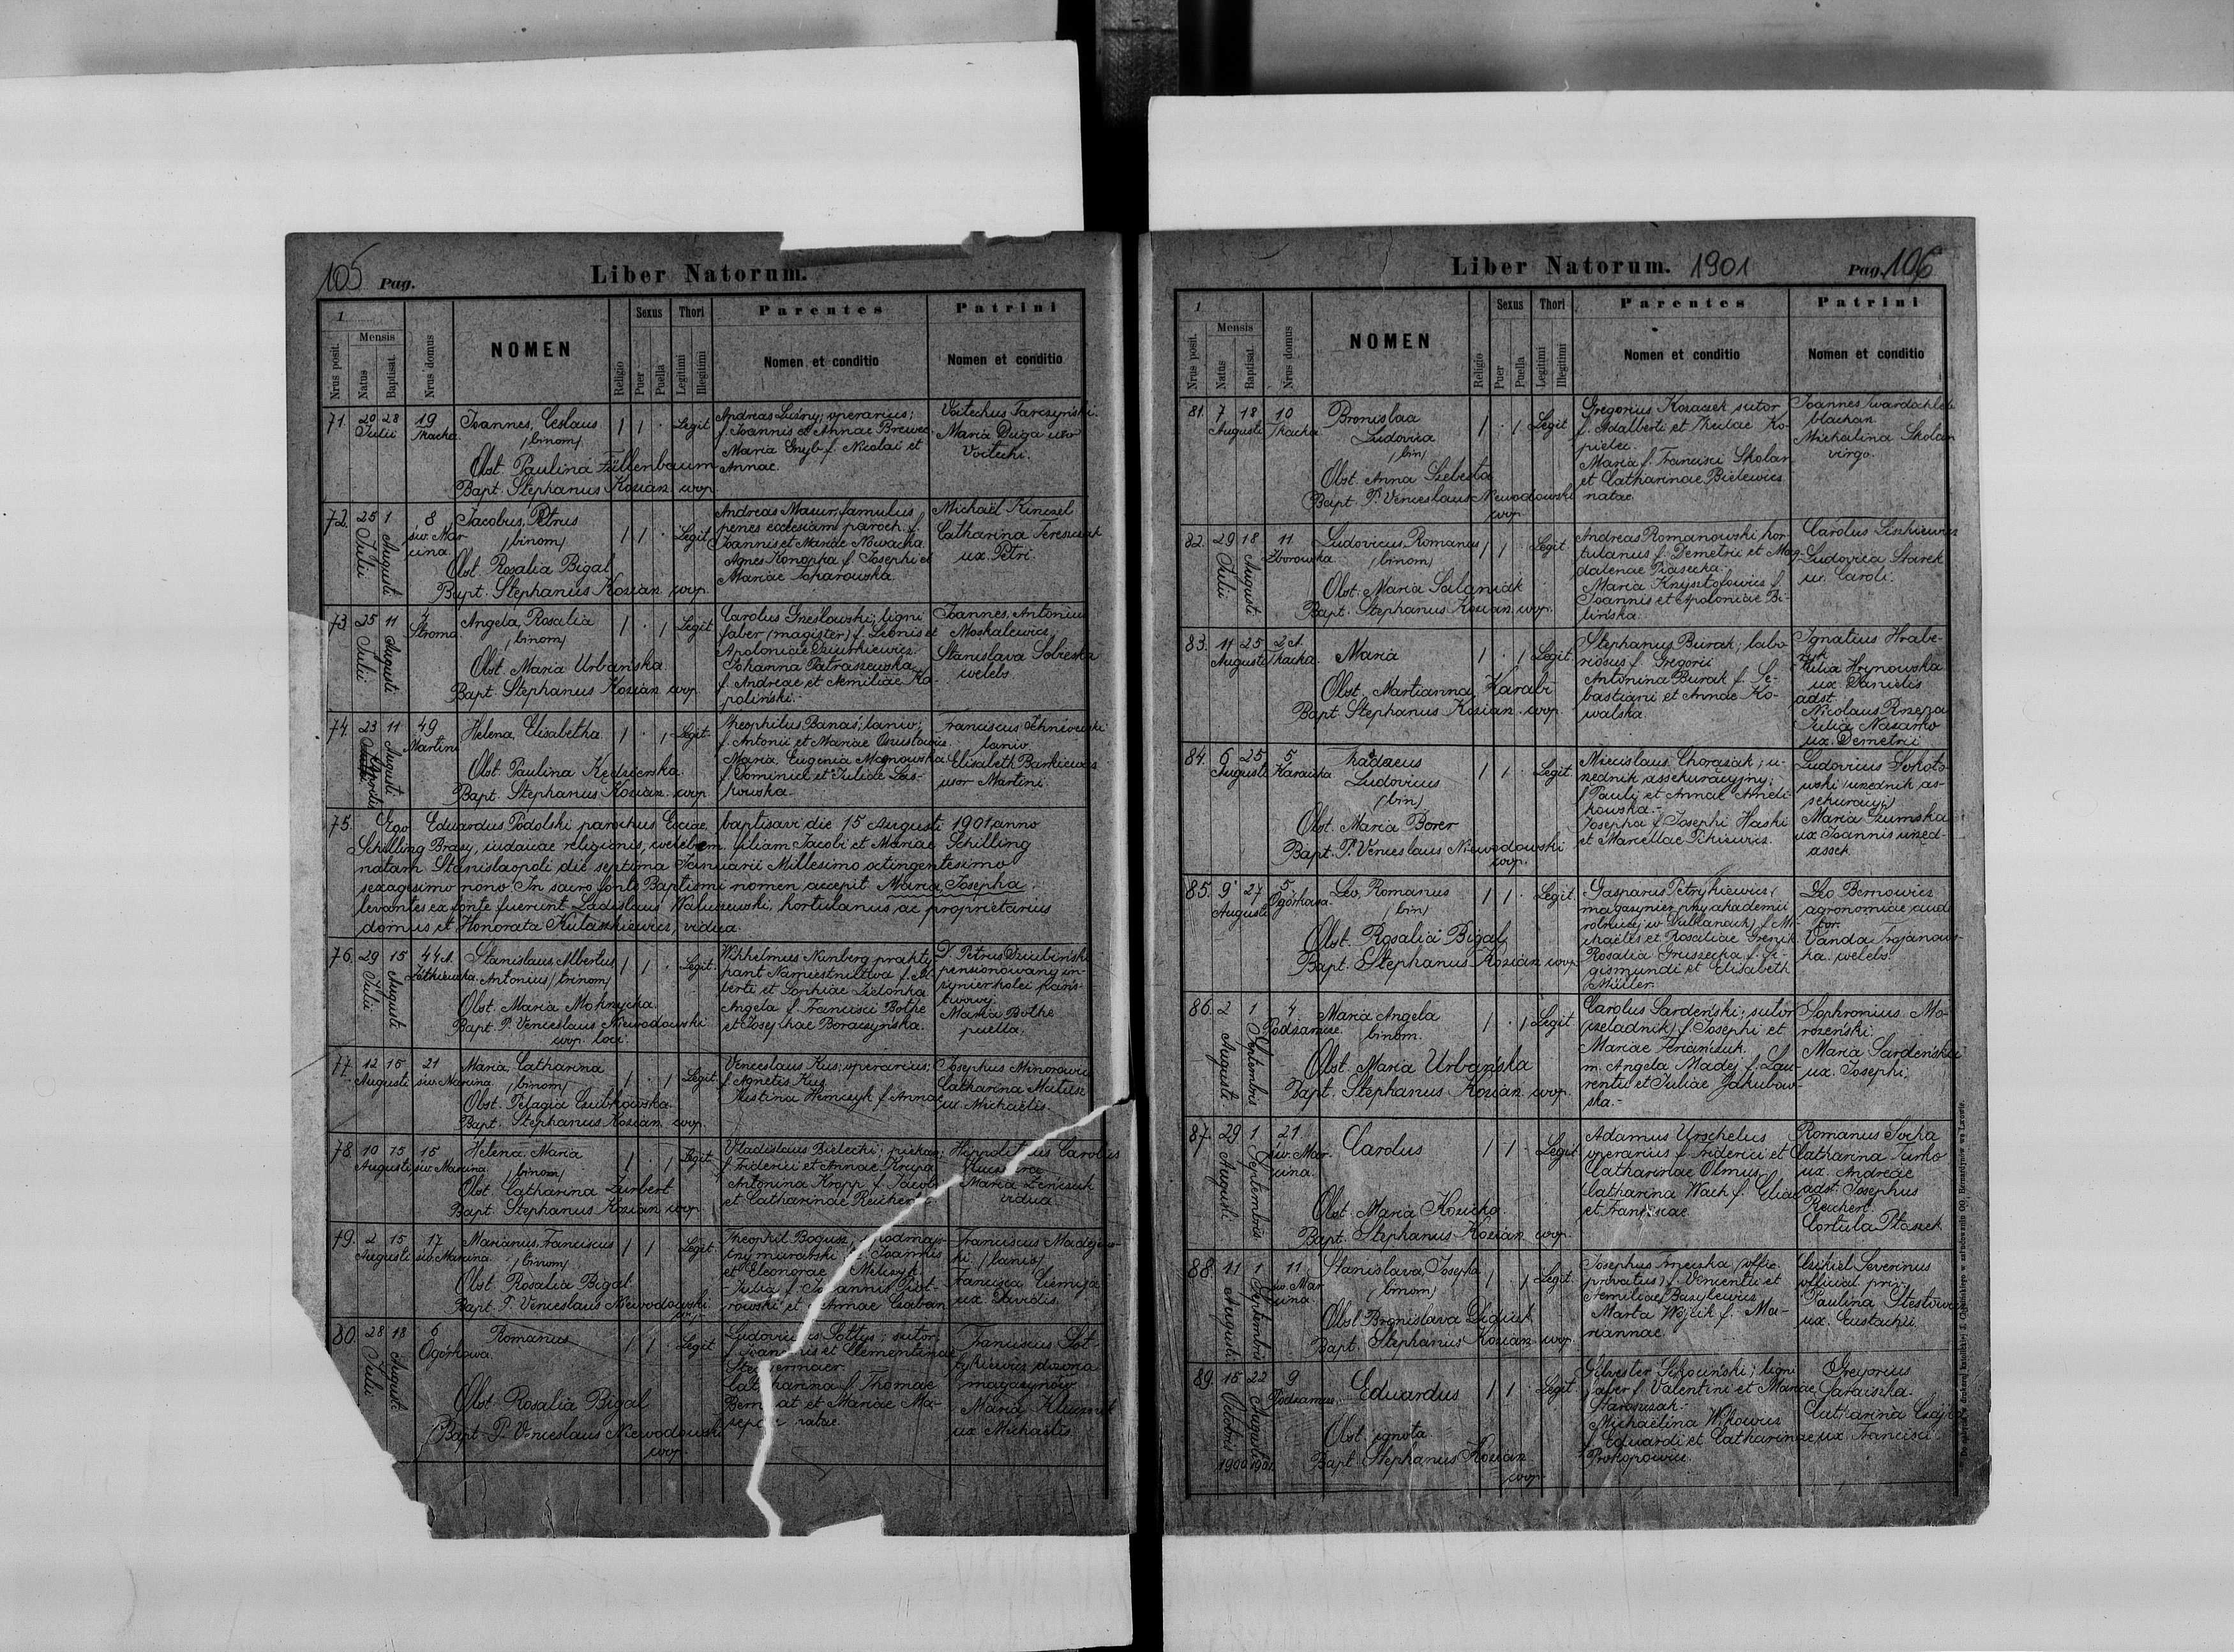 105 Pag.
Liber Natorum.
1
Nrus posit.
Mensis
Natus
Baptisat.
Nrus domus
NOMEN
Religio
Sexus
Puer
Puella
Thori
Legitimi
Illegitimi
Parentes
Nomen et conditio
Patrini
Nomen et conditio
71. 20 Julii 28 19 Tkacka
Joannes, Ceslaus
/binom/
Obst. Paulina Füllenbaum
Bapt. Stephanus Kozian coop.
1 1 . Legit
Andreas Leśny; operarius;
f. Joannis et Annae
Maria Gnyb f. Nicolai et
Annae.
Voitechus Tarczyński.
Maria Duga uxor
Voitechi.
72. 25 Julii 1 Augusti 8 św. Mar
cina
Jacobus, Petrus
/binom/
Obst. Rosalia Bigal
Bapt. Stephanus Kozian coop.
1 1 . Legit
Andreas Mazur, famulus
penes ecclesiam paroch. f.
Joannis et Mariae Nowacka.
Agnes Konoppa f. Josephi et
Mariae Toparowska.
Michaël Kinczel
Catharina
ux. Petri.
73. 25 Julii 11 Augusti 4 Stroma.
Angela, Rosalia
/binom/
Obst. Maria Urbańska.
Bapt. Stephanus Kozian coop.
1 . 1 Legit
Carolus Gresłowski; ligni
faber (magister) f. Leonis et
Apoloniae Dziurkiewicz.
Johanna Patraszewska
f. Andreae et Aemiliae Ko-
poliński.
Joannes, Antonius
Moskalewicz,
Stanislava Sobieska
celebs.
74. 23 Aprilis 11 Augusti 49 Martini
Helena, Elisabetha
Obst. Paulina Kędzierska.
Bapt. Stephanus Kozian coop.
1 . 1 Legit.
Theophilus Banaś; lanio;
f. Antonii et Mariae
Maria, Eugenia Magnowska
f. Dominici et Juliae Las-
kowska.
Franciscus
lanio.
Elisabeth Barkiewicz
uxor Martini.
75. Ego Eduardus Podolski parochus baptisavi die 15 Augusti 1901 anno
Schilling Brasy, iudaicae religionis, celebem. filiam Jacobi et Mariae Schilling
natam Stanislaopoli die septima Januarii Millesimo octingentesimo
sexagesimo nono. In sacro fonte Baptismi nomen accepit Maria, Josepha.
levantes ex fonte fuerunt Ladislaus Waluszewski, hortulanus, ac proprietarius
domus et Honorata Kulaszkiewicz, vidua.
76. 29 Julii 15 Augusti 44 A.
Stanislaus, Albertus
Antonius /trinom/
Obst. Maria Mokrzycka.
Bapt. P. Venceslaus Niewodowski
coop. loci.
1 1 . Legit.
Wilhelmus Nunberg prakty-
kant Namiestnictwa f. Al-
berti et Sophiae Zielonka
Angela f. Francisci Bothe
et Josephae Boraczyńska.
D. Petrus Dziubiński
pensionowany in-
żynier kolei pańs-
twowej.
Maria Bothe
puella.
77. 12 Augusti 15 21 św. Marcina
Maria, Catharina
/binom/
Obst. Pelagia Czubkowska.
Bapt. Stephanus Kozian coop.
1 . 1 Legit.
Venceslaus Kus; operarius;
f. Agnetis Kus
Justina Hemczyk f. Annae
Josephus Minorowicz
Catharina
ux. Michaëlis.
78 10 Augusti 15 15 św. Marcina
Helena, Maria
/binom/
Obst. Catharina Zurbert
Bapt. Stephanus Kozian coop.
1 . 1 Legit.
Vladislaus Bielecki; piekarz;
f. Friderici et Annae Krupa
Antonina Kropp f. Jacobi
et Catharinae Reichert
Hippolitus Carolus
Maria Zenczuk
vidua.
79. 2 Augusti 15 17 św. Marcina
Marianus, Franciscus
/binom/
Obst. Rosalia Bigal.
Bapt. P. Venceslaus Niewodowski
coop.
1 1 Legit.
Theophil Bogusz, podmajs-
trzy murarski f. Joannis
et Eleonorae Melczyk
Julia f. Joannis Piot-
rowski et Annae Czaban
Franciscus Madejow-
ski /lanio/
Francisca
ux. Davidis.
80. 28 Julii 18 Augusti 6 Ogórkowa.
Romanus
Obst. Rosalia Bigal
Bapt. P. Venceslaus Niewodowski
coop.
1 1 Legit.
Ludovicus Sołtys; sutor
f. Joannis et Clementinae
Catharina f. Thomae
et Mariae Ma-
natae.
Franciscus Soł-
tykiewicz dozorca
magazynów
Maria
ux Michaëlis.
Liber Natorum. 1901
Pag. 106
1
Nrus posit.
Mensis
Natus
Baptisat.
Nrus domus
NOMEN
Religio
Sexus
Puer
Puella
Thori
Legitimi
Illegitimi
Parentes
Nomen et conditio
Patrini
Nomen et conditio
81. 7 Augusti 18 10 Tkacka
Bronislaa
Ludovica
/bin/
Obst. Anna Szebesta
Bapt. P. Venceslaus Niewodowski
coop.
1 . 1 Legit
Gregorius Kozaczek sutor
f. Adalberti et Theclae Ko-
pielec.
Maria f. Francisci Skolan
et Catharinae Bielewicz
natae.
Joannes
blachan.
Michalina Skolan
virgo.
82. 29 Julii 18 Augusti 11 Zborowska
Ludovicus, Romanus
/binom/
Obst. Maria Salaniak
Bapt. Stephanus Kozian coop.
1 1 . Legit
Andreas Romanowski hor-
tulanus f. Demetrii et Mag-
dalenae Piasecka.
Maria Krzysztofowicz f.
Joannis et Apoloniae Bi-
lińska.
Carolus Liszkiewicz
Ludovica Starek
ux. Caroli.
83. 11 Augusti 25 2 A. Tkacka.
Maria
Obst. Martianna Karabi
Bapt. Stephanus Kozian coop.
1 . 1 Legit.
Stephanus Burak; labo-
riosus f. Gregorii
Antonina Burak f. Se-
bastiani et Annae Ko-
walska.
Ignatius Hrabe-
Julia Hrynowska
ux. Danielis
adst.
Nicolaus
Julia
ux. Demetrii
84. 6 Augusti 25 5
Thadaeus
Ludovicus
/bin/
Obst. Maria Borer
Bapt. P. Venceslaus Niewodowski
coop.
1 1 . Legit.
Miecislaus Chorązak; u-
rzędnik assekuracyjny;
f. Pauli et Annae Ameli-
kowska.
Josepha f. Josephi Haski
et Marcellae
Ludovicus Sokoło-
wski (urzędnik as-
sekuracji)
Maria Szumska
ux Joannis urzęd-
assek.
85. 9 Augusti 27 5 Ogórkowa.
Leo, Romanus
/bin/
Obst. Rosalia Bigal,
Bapt. Stephanus Kozian coop.
1 1 . Legit.
Gasparus Petrykiewicz,
magazynier przy akademii
rolniczej w Dublanach, f. Mi-
chaëlis et Rosaliae
Rosalia Gruszecka f. Si-
gismundi et Elisabeth
Müller.
Leo Bernowicz
agronomiae audi-
tor.
Vanda Trojanows-
ka. celebs.
86. 2 Augusti. 1 Septembris 4. Podzamcze.
Maria Angela
binom.
Obst. Maria Urbańska
Bapt. Stephanus Kozian coop.
1 . 1 Legit
Carolus Sardeński; sutor
(czeladnik) f. Josephi et
Mariae
m. Angela Madej f. Lau-
rentii et Juliae Jakubow-
ska.-
Sophronius Mo-
rozeński.
Maria Sardeńska
ux. Josephi.
87. 29 Augusti 1 Septembris 21 św. Mar-
cina.
Carolus
Obst. Maria Kozicka
Bapt. Stephanus Kozian coop.
1 1 . Legit
Adamus Urschelus
operarius f. Friderici et
Catharinae Olmus
Catharina Wach f. Eliae
et Franciscae.
Romanus Socha
Catharina Turko
ux. Andreae
adst. Josephus
Reichert.
Cortula Ptaszek
88. 11 Augusti. 1 Septembris 11. św. Mar
cina.
Stanislava, Josepha
/binom/
Obst. Bronislava Dydiuk
Bapt. Stephanus Kozian coop.
1 . 1 Legit.
Josephus (offic.
privatus) f. Vincentii et
Aemiliae Bazylewicz
Marta Wojcik f. Ma-
riannae.
Ezikiel Severinus
official. priv.
Paulina
ux. Eustachii.
89. 15 Octobris 1900 22 Augusti 1901. 9 Podzamcze.
Eduardus
Obst. ignota.
Bapt. Stephanus Kozian
coop.
1 1 . Legit.
Silvester ligni
faber f. Valentini et Mariae
Michaëlina
f. Eduardi et Catharinae
Prokopowicz.
Gregorius
Catharina
ux. Francisci